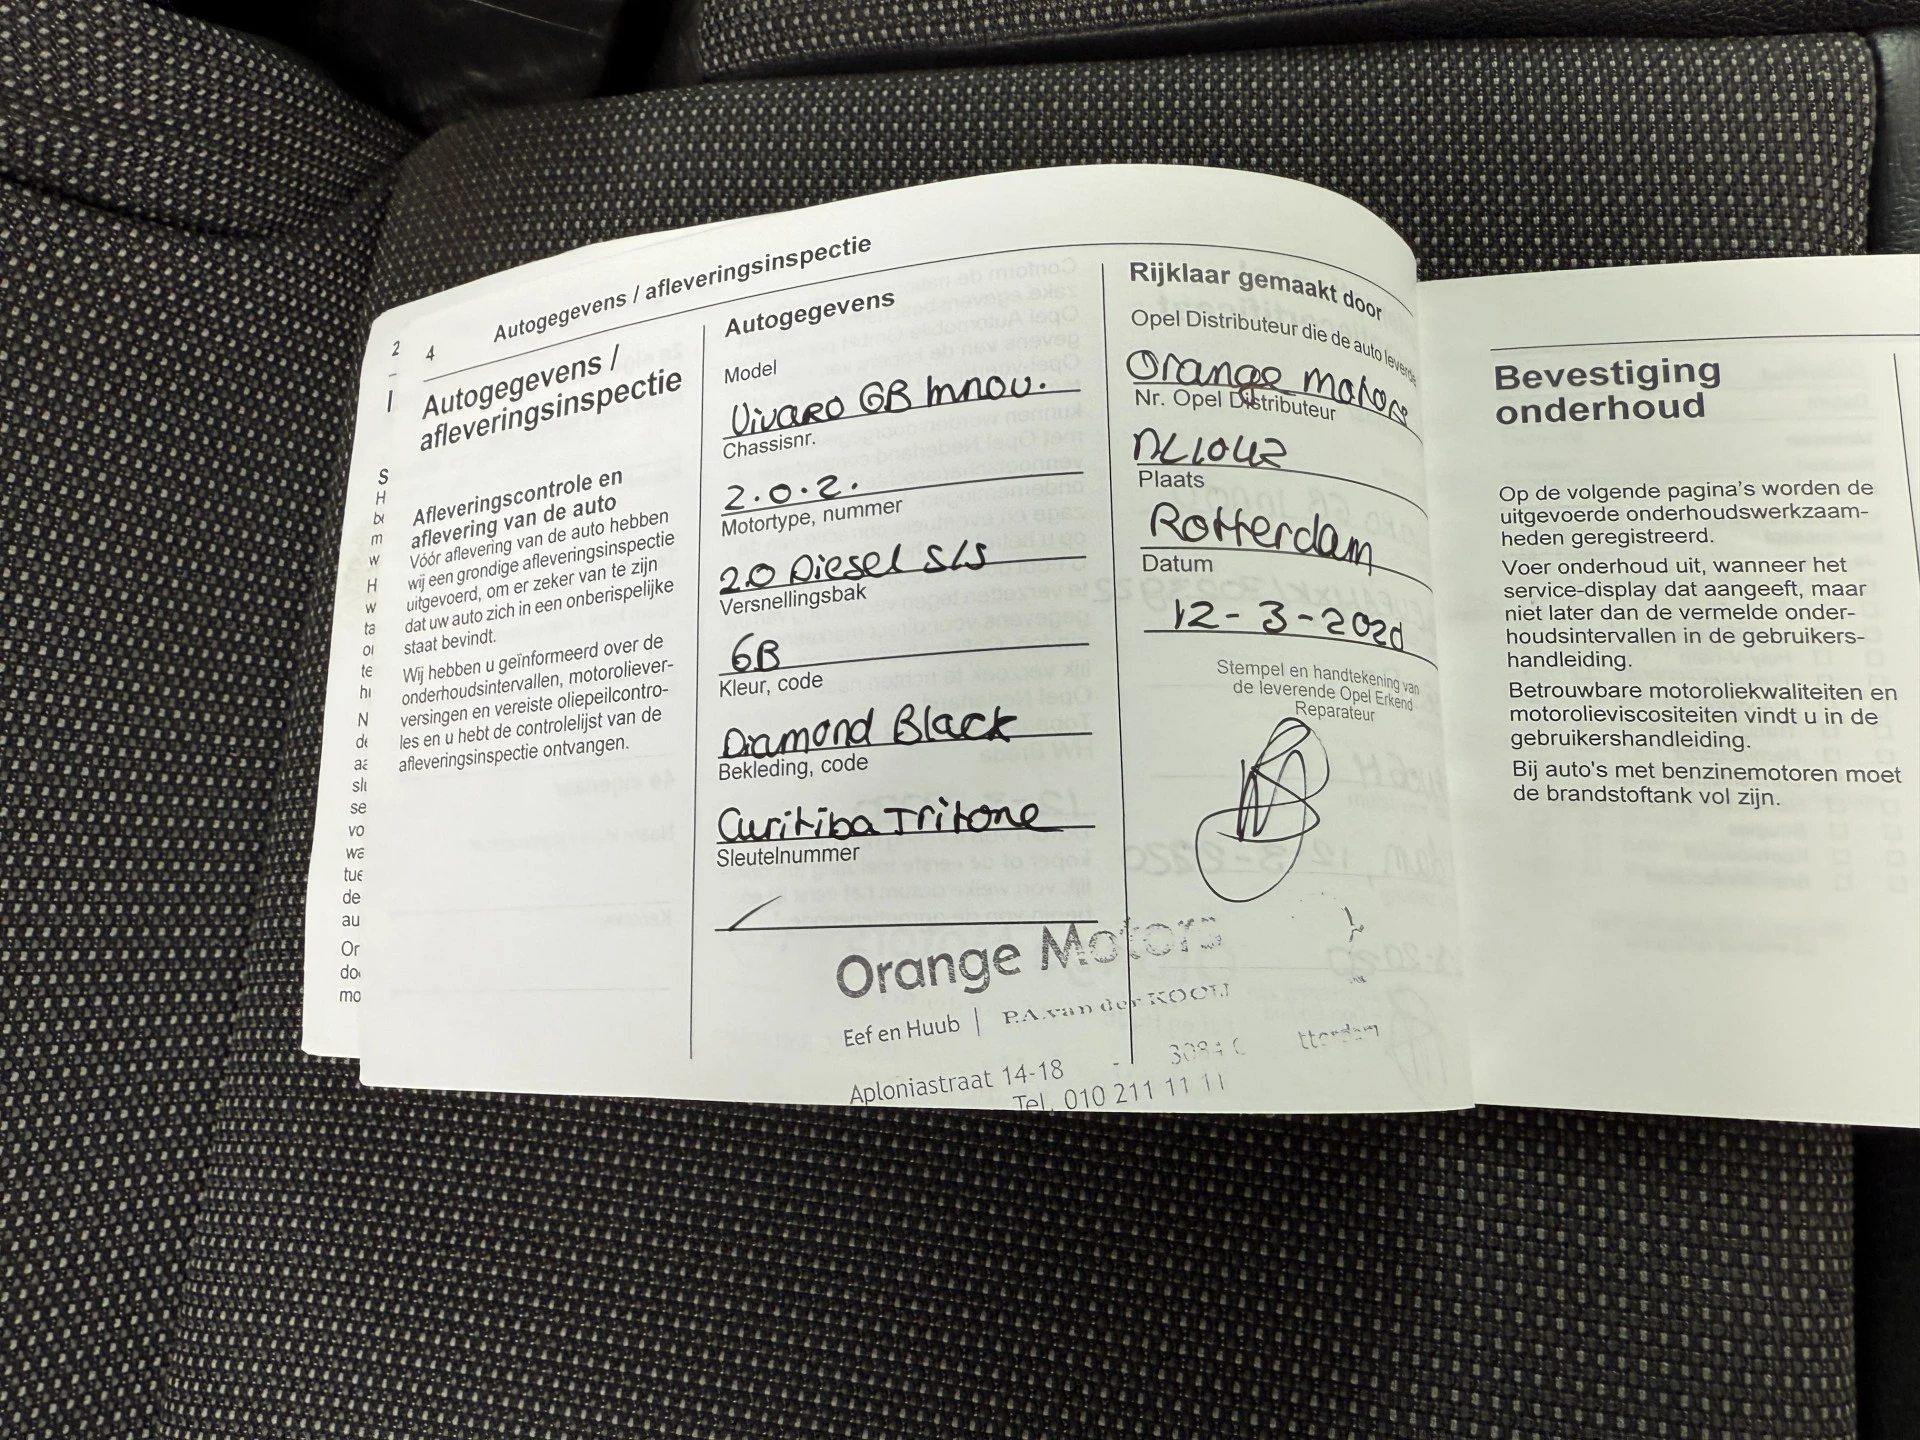 2
I
S
H
m
w
H
w
ta
te
N
se
vo
wa
tue
de
au
Or
mo
4
Autogegevens / afleveringsinspectie
Autogegevens /
afleveringsinspectie
Afleveringscontrole en
aflevering van de auto
Vóór aflevering van de auto hebben
wij een grondige afleveringsinspectie
uitgevoerd, om er zeker van te zijn
dat uw auto zich in een onberispelijke
staat bevindt.
Wij hebben u geïnformeerd over de
onderhoudsintervallen, motoroliever-
versingen en vereiste oliepeilcontro-
les en u hebt de controlelijst van de
afleveringsinspectie ontvangen.
Autogegevens
Model
Vivaro GB Innov.
Chassisnr.
2.0.2.
Motortype, nummer
2.0 Diesel S/S
Versnellingsbak
6B
Kleur, code
Diamond Black
Bekleding, code
Curitiba Tritone
Sleutelnummer
Rijklaar gemaakt door
Opel Distributeur die de auto leverde
Orange motors
Nr. Opel Distributeur
NL1042
Plaats
Rotterdam
Datum
12-3-2020
Stempel en handtekening van
de leverende Opel Erkend
Reparateur
Orange Motors
Eef en Huub | P.A. van der KOOIJ
Aploniastraat 14-18 - 3084 tterdam
Tel. 010 211 11 11
Bevestiging
onderhoud
Op de volgende pagina's worden de
uitgevoerde onderhoudswerkzaam-
heden geregistreerd.
Voer onderhoud uit, wanneer het
service-display dat aangeeft, maar
niet later dan de vermelde onder-
houdsintervallen in de gebruikers-
handleiding.
Betrouwbare motoroliekwaliteiten en
motorolieviscositeiten vindt u in de
gebruikershandleiding.
Bij auto's met benzinemotoren moet
de brandstoftank vol zijn.